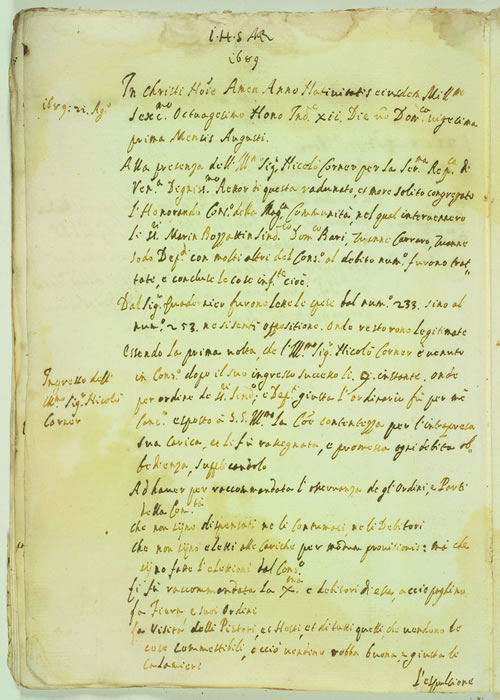 I.H.S.
1689
1689: 21. Ag.o
In Christi No.e Amen Anno Nativitatis eiusdem Mill.mo
Sexc.mo Octuagesimo Nono Ind. XII. Die vero Dom.co vigesima
prima Mensis Augusti.
Alla presenza dell' Ill.mo Sig. Nicolò Corner per la Ser.ma Rep.ca di
Ven.a Degniss.mo Rettor di questa radunato, et more solito congregato
l'Honorando Cons.o della Mag.ca Communità nel qual intervennero
li Marin Bozzattin Sind.co Dom.co Bari, Zuanne Carraro, Zuanne
Dep.ti con molti altri del Cons.o al debito num.o furono trat
tate, e concluse le cose inf.te cioè.
Dal Sig. Quadernier furono lette le spese dal num.o 233. sino al
num.o 253. ne si sentì oppositione. onde restorono legitimate
Ingresso dell'
Ill.mo Sig. Nicolò
Corner
Essendo la prima volta, che l'Ill.mo Sig. Nicolò Corner è venuto
in Cons.o dopo il suo ingresso successo li instante, onde
per ordine de Sind.ci e Dep.ti giusta l'ordinario fù per mè
Canc.r esposto à S.S. Ill.ma la contentezza per l'intrapresa
sua carica, et li fù rassegnata, e promessa ogni debita ob
bedienza, supplicandolo
Ad haver per raccommandata l'osservanza de gl'Ordini, e Parti
della Com.tà
che non sijno dispensati ne li Contumaci ne li Debitori
che non sijno eletti alle Cariche per modum provisionis: mà che
sijno fatte l'elettioni dal Cons.o
fù raccommandata la e debitori di essa, acciò paghino
la Fiera e suoi Ordini
la Visita delli Pistori, et Hosti, et di tutti quelli che vendono le
cose commestibili, acciò vendino robba buona, e giusta li
Calamieri
L'espulsione